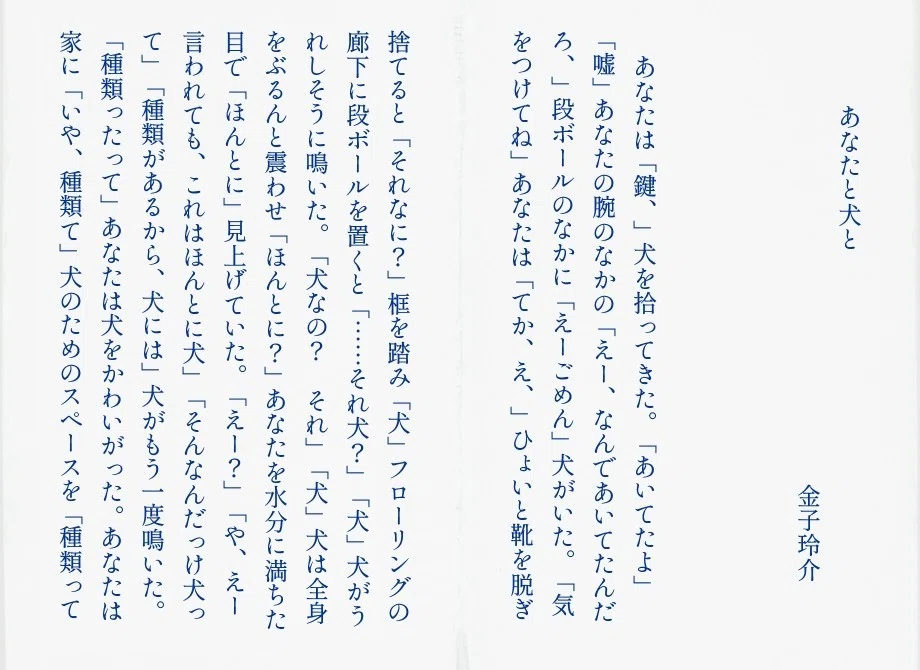 あなたと犬と
金子玲介
あなたは「鍵、」犬を拾ってきた。「あいてたよ」
「嘘」あなたの腕のなかの「えー、なんであいてたんだ
ろ、」段ボールのなかに「えーごめん」犬がいた。「気
をつけてね」あなたは「てか、え、」ひょいと靴を脱ぎ
捨てると「それなに？」框を踏み「犬」フローリングの
廊下に段ボールを置くと「……それ犬？」「犬」犬がう
れしそうに鳴いた。「犬なの？　それ」「犬」犬は全身
をぶるんと震わせ「ほんとに？」あなたを水分に満ちた
目で「ほんとに」見上げていた。「えー？」「や、えー
言われても、これはほんとに犬」「そんなんだっけ犬っ
て」「種類があるから、犬には」犬がもう一度鳴いた。
「種類ったって」あなたは犬をかわいがった。あなたは
家に「いや、種類て」犬のためのスペースを「種類って